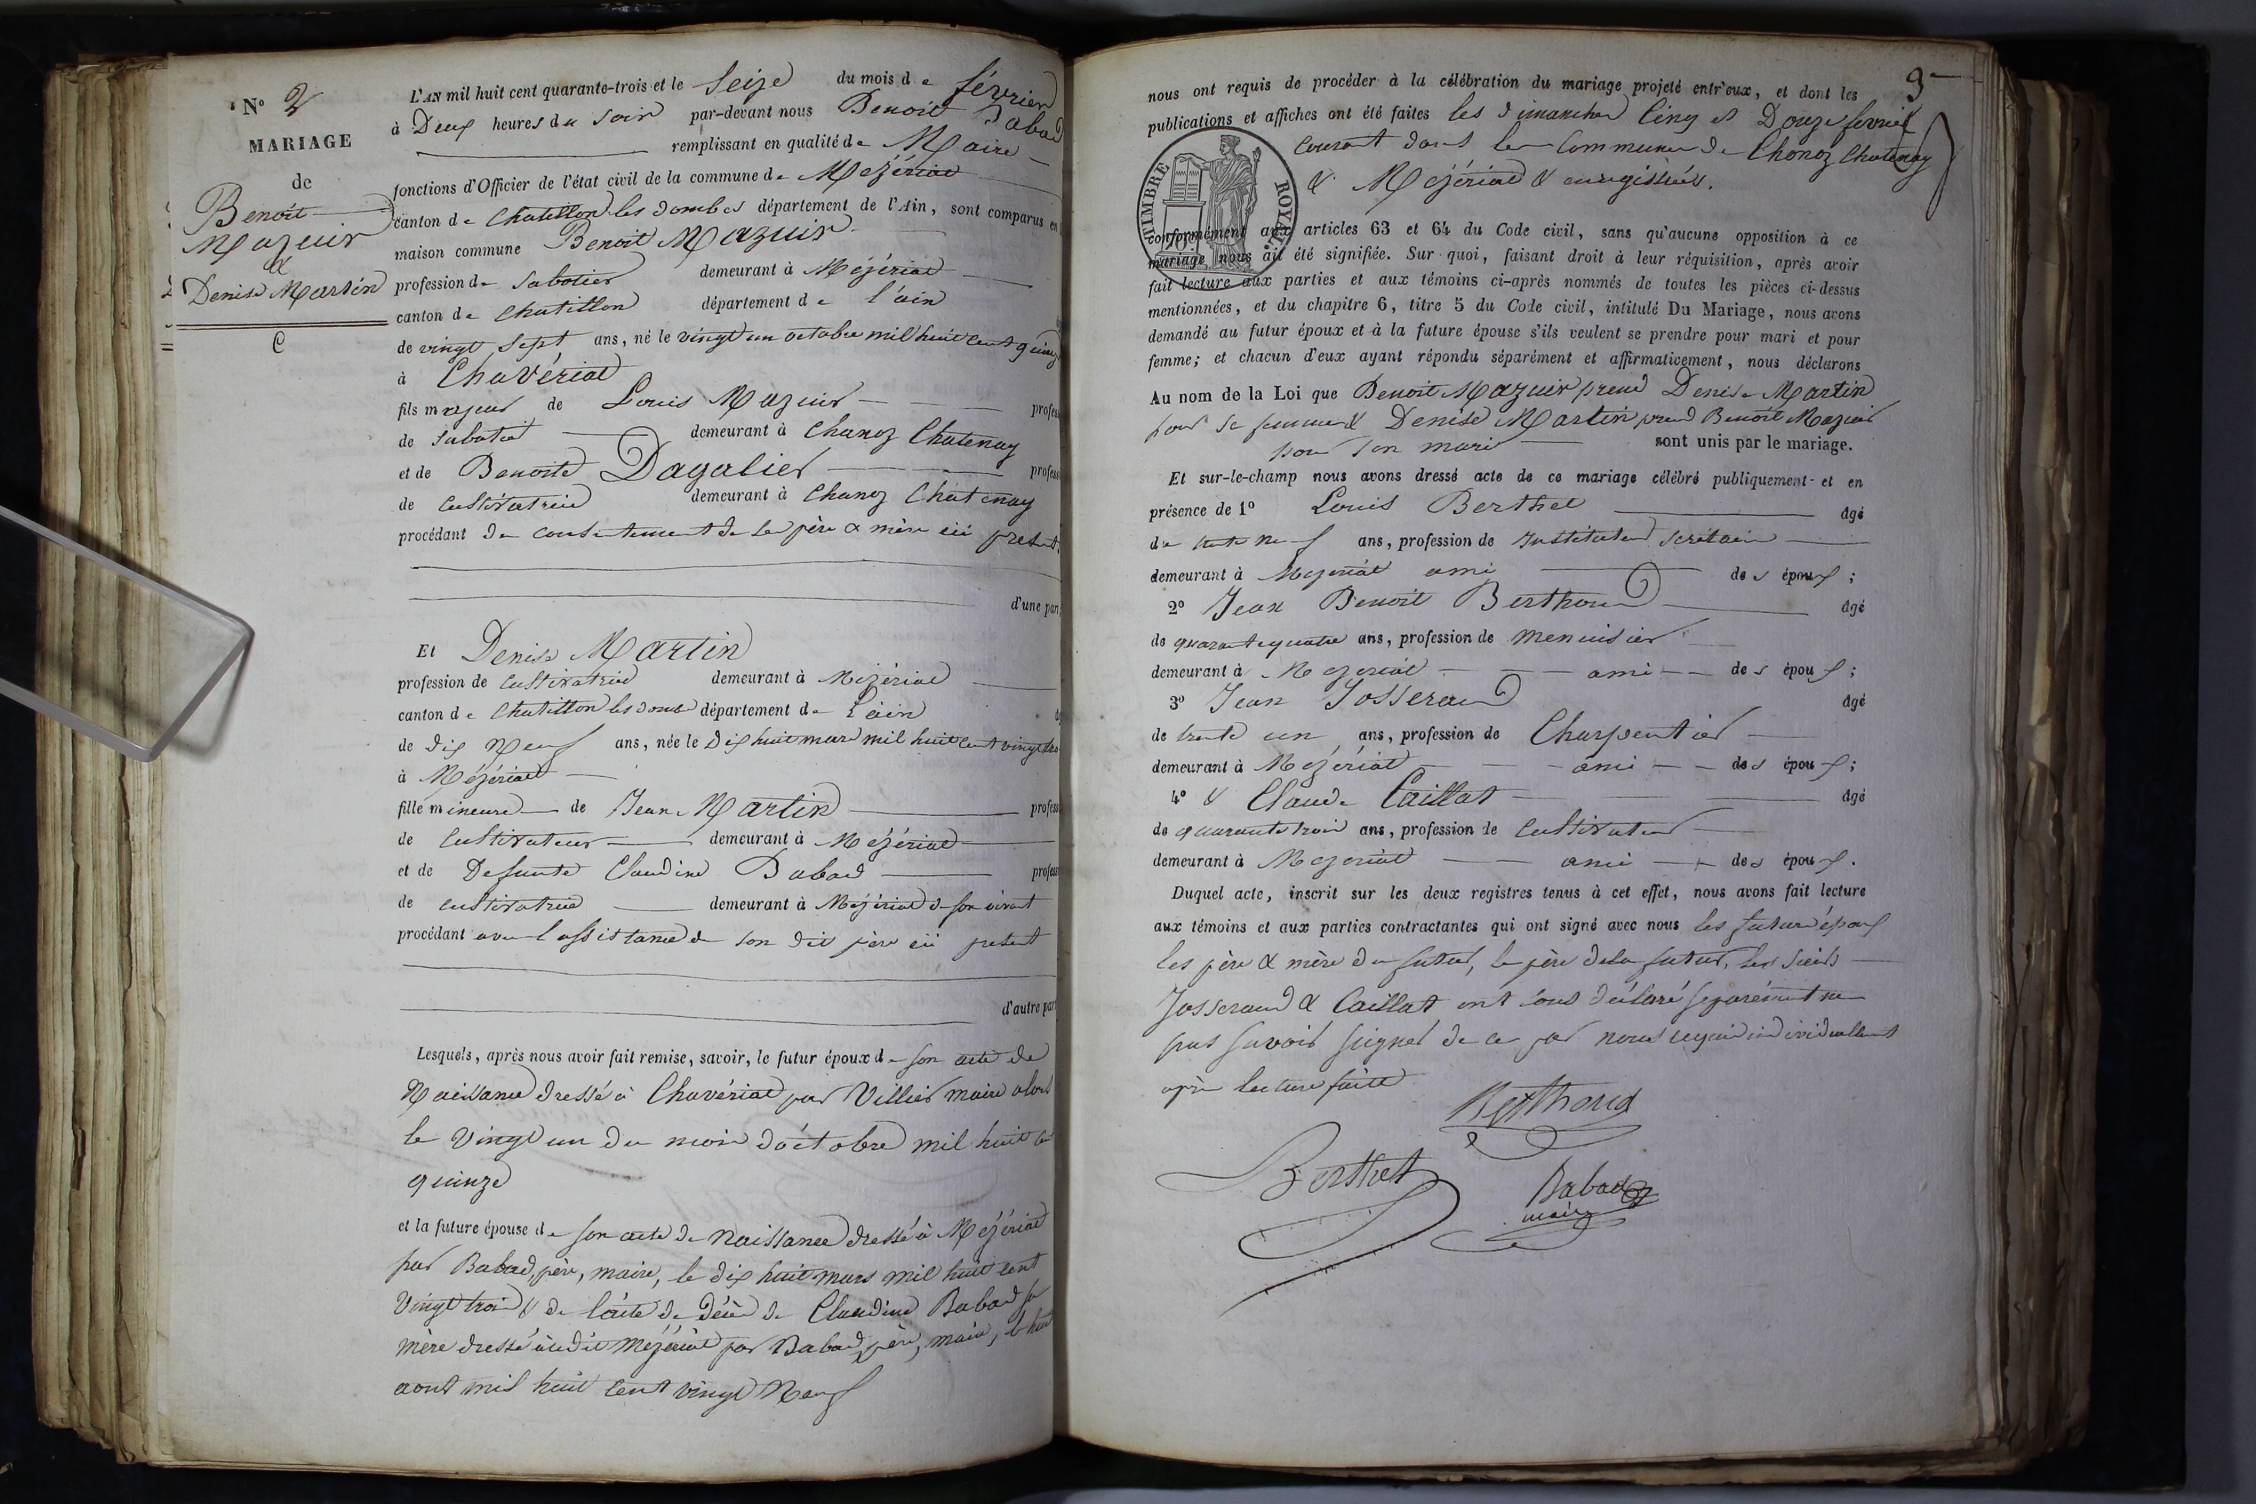 N° 2
MARIAGE
de
Benoit
Mazuir
&
Denise Martin
C
L'AN mil huit cent quarante-trois et le Seize du mois de février
à Deux heures du Soir par-devant nous Benoit Babad
remplissant en qualité de Maire
fonctions d'Officier de l'état civil de la commune de Mézériat
canton de Chatillon les dombes département de l'Ain, sont comparus en
maison commune Benoit Mazuir
profession de Sabotier demeurant à Mézériat
canton de Chatillon département de l'ain
de vingt Sept ans, né le vingt un octobre mil huit cent quinz
à Chavériat
fils majeur de Louis Mazuir profes
de Sabotier demeurant à Chanoz Chatenay
et de Benoite Dagalier profes
de Cultivatrice demeurant à Chanoz Chatenay
procédant du consentement de ses père & mère ici présents
d'une part
Et Denise Martin
profession de Cultivatrice demeurant à Mézériat
canton de Chatillon les dombe département de L'ain
de dix Neuf ans, née le Dix huit mars mil huit cent vingt tro
à Mézériat
fille mineure de Jean Martin profess
de Cultivateur demeurant à Mézériat
et de Defunte Claudine Babad profes
de cultivatrice demeurant à Mézériat de son vivant
procédant avec l'assistance de son dit père ici présent
d'autre part
Lesquels, après nous avoir fait remise, savoir, le futur époux de son acte de
Naissance dressé à Chavériat par Villier maire alors
le Vingt un du mois d'octobre mil huit ce
quinze
et la future épouse de son acte de Naissance dressé à Mézériat
par Babad, père, maire, le dix huit mars mil huit cent
Vingt trois & de l'acte de décès de Claudine Babad sa
mère dressé audit Mézériat par Babad, père, maire, le huit
aout mil huit cent vingt Neuf
9
nous ont requis de procéder à la célébration du mariage projeté entr'eux, et dont les
publications et affiches ont été faites les dimanches Cinq et Douze fevrier
courant dans les Communes de Chonoz Chatenay
& Mézériat & enregistrées.
TIMBRE ROYAL
conformément aux articles 63 et 64 du Code civil, sans qu'aucune opposition à ce
mariage nous ait été signifiée. Sur quoi, faisant droit à leur réquisition, après avoir
fait lecture aux parties et aux témoins ci-après nommés de toutes les pièces ci-dessus
mentionnées, et du chapitre 6, titre 5 du Code civil, intitulé Du Mariage, nous avons
demandé au futur époux et à la future épouse s'ils veulent se prendre pour mari et pour
femme; et chacun d'eux ayant répondu séparément et affirmativement, nous déclarons
Au nom de la Loi que Benoit Mazuir prend Denise Martin
pour sa femme & Denise Martin prend Benoit Mazuir
pour son mari sont unis par le mariage.
Et sur-le-champ nous avons dressé acte de ce mariage célébré publiquement et en
présence de 1° Louis Berthet agé
de trente neuf ans, profession de Instituteur Secrétaire
demeurant à Mezeriat ami des époux;
2° Jean Benoit Berthoud agé
de quarante quatre ans, profession de menuisier
demeurant à Mezeriat ami des époux;
3° Jean Josserand agé
de trente un ans, profession de Charpentier
demeurant à Mézériat ami des époux;
4° & Claude Caillat agé
de quarante trois ans, profession de Cultivateur
demeurant à Mezeriat ami des époux.
Duquel acte, inscrit sur les deux registres tenus à cet effet, nous avons fait lecture
aux témoins et aux parties contractantes qui ont signé avec nous les futurs époux
les père & mère du futur, le père de la future, les Sieurs
Josserand & Caillat ont tous déclaré séparément ne
pas savoir signer de ce par nous requis individuellement
après lecture faite
Berthoud
Berthet
Babad
maire